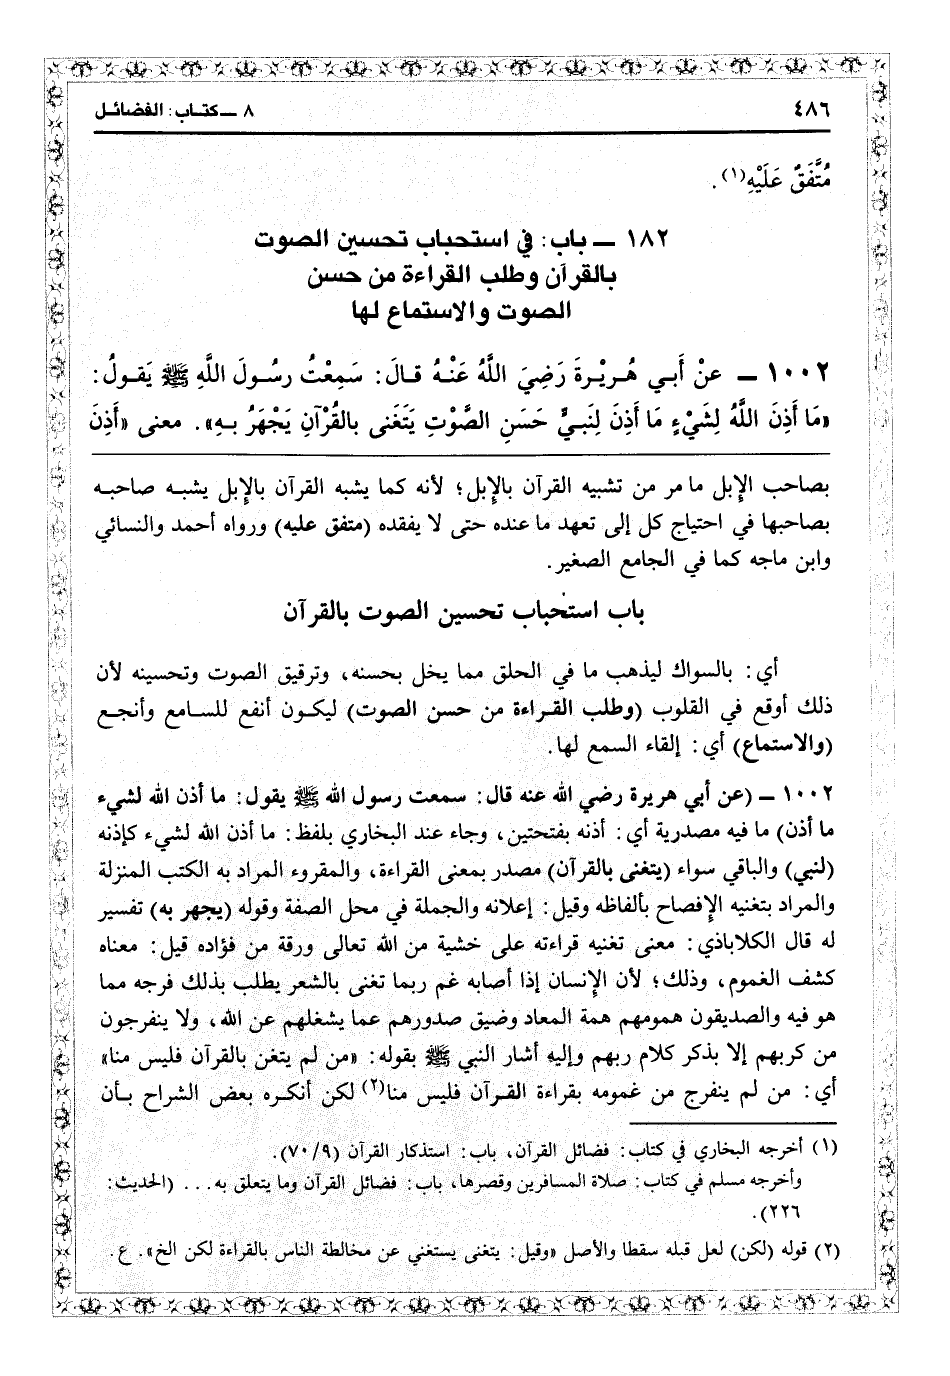 ٤٨٦ ٨ ــ كتاب: الفضائل
مُتَّفَقٌ عَلَيْهِ(١).
١٨٢ ــ باب: في استحباب تحسين الصوت
بالقرآن وطلب القراءة من حسن
الصوت والاستماع لها
١٠٠٢ ــ عنْ أَبي هُـريْـرةَ رَضِيَ اللَّهُ عَنْـهُ قـالَ: سَمِعْتُ رسُـولَ اللَّهِ ﷺ يَقولُ:
«مَا أَذِنَ اللَّهُ لِشَيْءٍ مَا أَذِنَ لِنَبـيٍّ حَسَنِ الصَّوْتِ يَتَغَنى بالقُرْآنِ يَجْهَرُ بـهِ». معنى «أَذِنَ
بصاحب الإِبل ما مر من تشبيه القرآن بالإِبل؛ لأنه كما يشبه القرآن بالإِبل يشبـه صاحبـه
بصاحبها في احتياج كل إلى تعهد ما عنده حتى لا يفقده (متفق عليه) ورواه أحمد والنسائي
وابن ماجه كما في الجامع الصغير.
باب استحباب تحسين الصوت بالقرآن
أي: بالسواك ليذهب ما في الحلق مما يخل بحسنه، وترقيق الصوت وتحسينه لأن
ذلك أوقع في القلوب (وطلب القـراءة من حسن الصوت) ليكـون أنفع للسـامع وأنجـع
(والاستماع) أي: إلقاء السمع لها.
١٠٠٢ ــ (عن أبي هريرة رضي الله عنه قال: سمعت رسول الله ﷺ يقول: ما أذن الله لشيء
ما أذن) ما فيه مصدرية أي: أذنه بفتحتين، وجاء عند البخاري بلفظ: ما أذن الله لشيء كإذنه
(لنبي) والباقي سواء (يتغنى بالقرآن) مصدر بمعنى القراءة، والمقروء المراد به الكتب المنزلة
والمراد بتغنيه الإِفصاح بألفاظه وقيل: إعلانه والجملة في محل الصفة وقوله (يجهر به) تفسير
له قال الكلاباذي: معنى تغنيه قراءته على خشية من الله تعالى ورقة من فؤاده قيل: معناه
كشف الغموم، وذلك؛ لأن الإِنسان إذا أصابه غم ربما تغنى بالشعر يطلب بذلك فرجه مما
هو فيه والصديقون همومهم همة المعاد وضيق صدورهم عما يشغلهم عن الله، ولا ينفرجون
من كربهم إلا بذكر كلام ربهم وإليه أشار النبي ﷺ بقوله: «من لم يتغن بالقرآن فليس منا»
أي: من لم ينفرج من غمومه بقراءة القـرآن فليس منا(٢) لكن أنكـره بعض الشراح بـأن
(١) أخرجه البخاري في كتاب: فضائل القرآن، باب: استذكار القرآن (٧٠/٩).
وأخرجه مسلم في كتاب: صلاة المسافرين وقصرها، باب: فضائل القرآن وما يتعلق به... (الحديث:
٢٢٦).
(٢) قوله (لكن) لعل قبله سقطا والأصل «وقيل: يتغنى يستغني عن مخالطة الناس بالقراءة لكن الخ». ع.